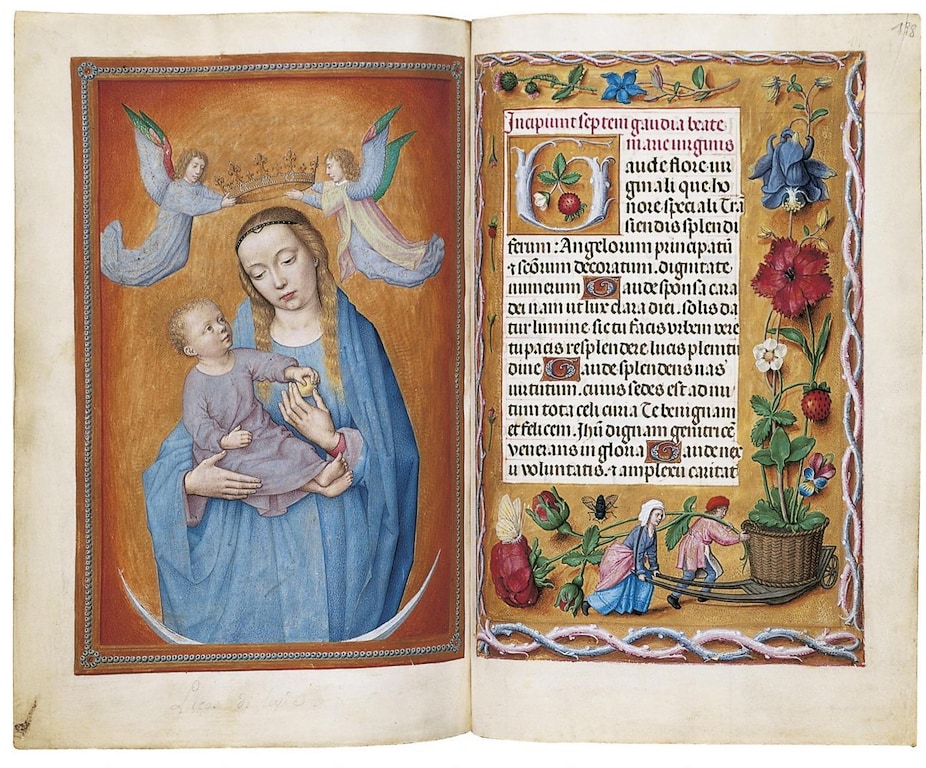 188
Incipiunt septem gaudia beate
marie uirginis
Gaude flore uir
ginali que ho
nore speciali Trā
siendis splendi
ferum : Angelorum principatū
⁊ scōrum decoratum. dignitate
numerum Gaude sponsa cara
dei nam ut lux clara diei. solis da
tur lumine. sic tu facis vrbem vere
tu pacis resplendere lucis plenitu
dine Gaude splendens uas
uirtutum. cuius sedes est ad nu
tum tota celi curia Te benignam
et felicem. Jhū dignam genitricē
venerans in gloria Gaude nex
u voluntatis. ⁊ amplexu caritat